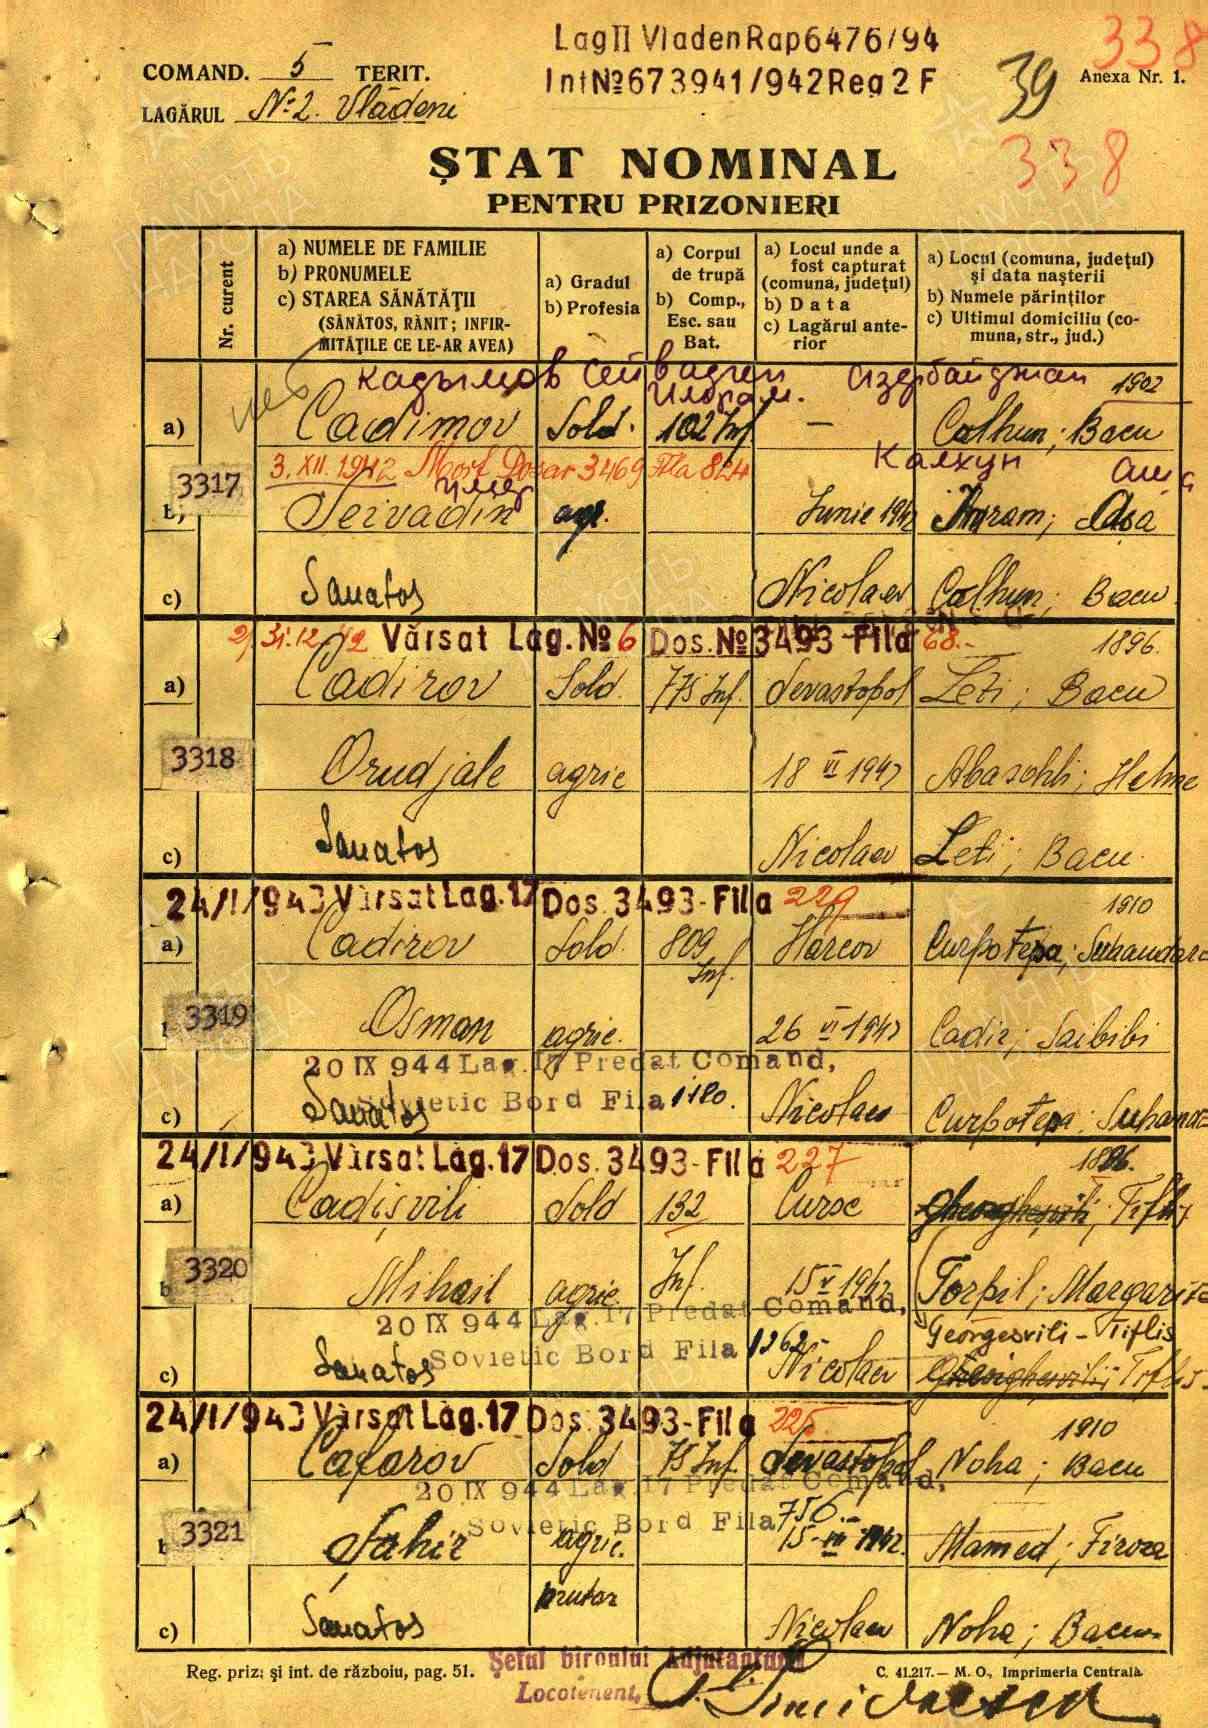 Lag II Vladen Rap 6476/94
338
COMAND. 5 TERIT.
Int № 673941/942 Reg 2 F
39
Anexa Nr. 1.
LAGĂRUL № 2. Vlădeni
ȘTAT NOMINAL
338
PENTRU PRIZONIERI
Nr. curent
a) NUMELE DE FAMILIE
b) PRONUMELE
c) STAREA SĂNĂTĂȚII
(SĂNĂTOS, RĂNIT; INFIR-
MITĂȚILE CE LE-AR AVEA)
a) Gradul
b) Profesia
a) Corpul
de trupă
b) Comp.,
Esc. sau
Bat.
a) Locul unde a
fost capturat
(comuna, județul)
b) Data
c) Lagărul ante-
rior
a) Locul (comuna, județul)
și data nașterii
b) Numele părinților
c) Ultimul domiciliu (co-
muna, str., jud.)
Кадымов Сейвадин Азербайджан 1902
Играм.
a) Cadimov Sold. 102 Inf — Calhun; Bacu
3. XII. 1942 Mort Dosar 3469 Fila 824 Калхун
умер
3317
b) Seivadin agr. Iunie 1942
c) Sanatos Nicolaev Calhun; Bacu
2/ 31.12.42 Vărsat Lag. № 6 Dos. № 3493 Fila 68.- 1896.
a) Cadirov Sold. 775 Inf. Sevastopol Leti; Bacu
3318 Orudjale agric 18 VI 1942 Abasohli; Helme
c) Sanatos Nicolaev Leti; Bacu
24/I/943 Vărsat Lag. 17 Dos. 3493-Fila 229 1910
a) Cadirov Sold. 809 Inf. Harcov Curpotepa; Suhandar
3319 Osman agric. 26 VI 1942 Cadir; Saibibi
20 IX 944 Lag. 17 Predat Comand,
Sovietic Bord Fila 1180.
c) Sanatos Nicolaev Curpotepa;
24/I/943 Vărsat Lag. 17 Dos. 3493-Fila 227 1896.
a) Cadișvili Sold 132 Cursc Tiflis
3320
b Mihail agric. Inf. 15 V 1942 Torpil; Margarita
20 IX 944 Lag. 17 Predat Comand,
Georgesvili - Tiflis
Sovietic Bord Fila 1262
c) Sanatos Nicolaev Tiflis
24/I/943 Vărsat Lag. 17 Dos. 3493-Fila 225 1910
a) Cafarov Sold 75 Inf. Sevastopol Noha; Bacu
20 IX 944 Lag. 17 Predat Comand,
Sovietic Bord Fila 756.-
3321 Șahir agric. 15-VI-1942. Mamed; Firoza
brutar
c) Sanatos Nicolaev Noha; Bacu
Reg. priz. și int. de războiu, pag. 51.
Șeful biroului Adjutantură
C. 41.217.— M. O., Imprimeria Centrală.
Locotenent,
ПАМЯТЬ НАРОДА